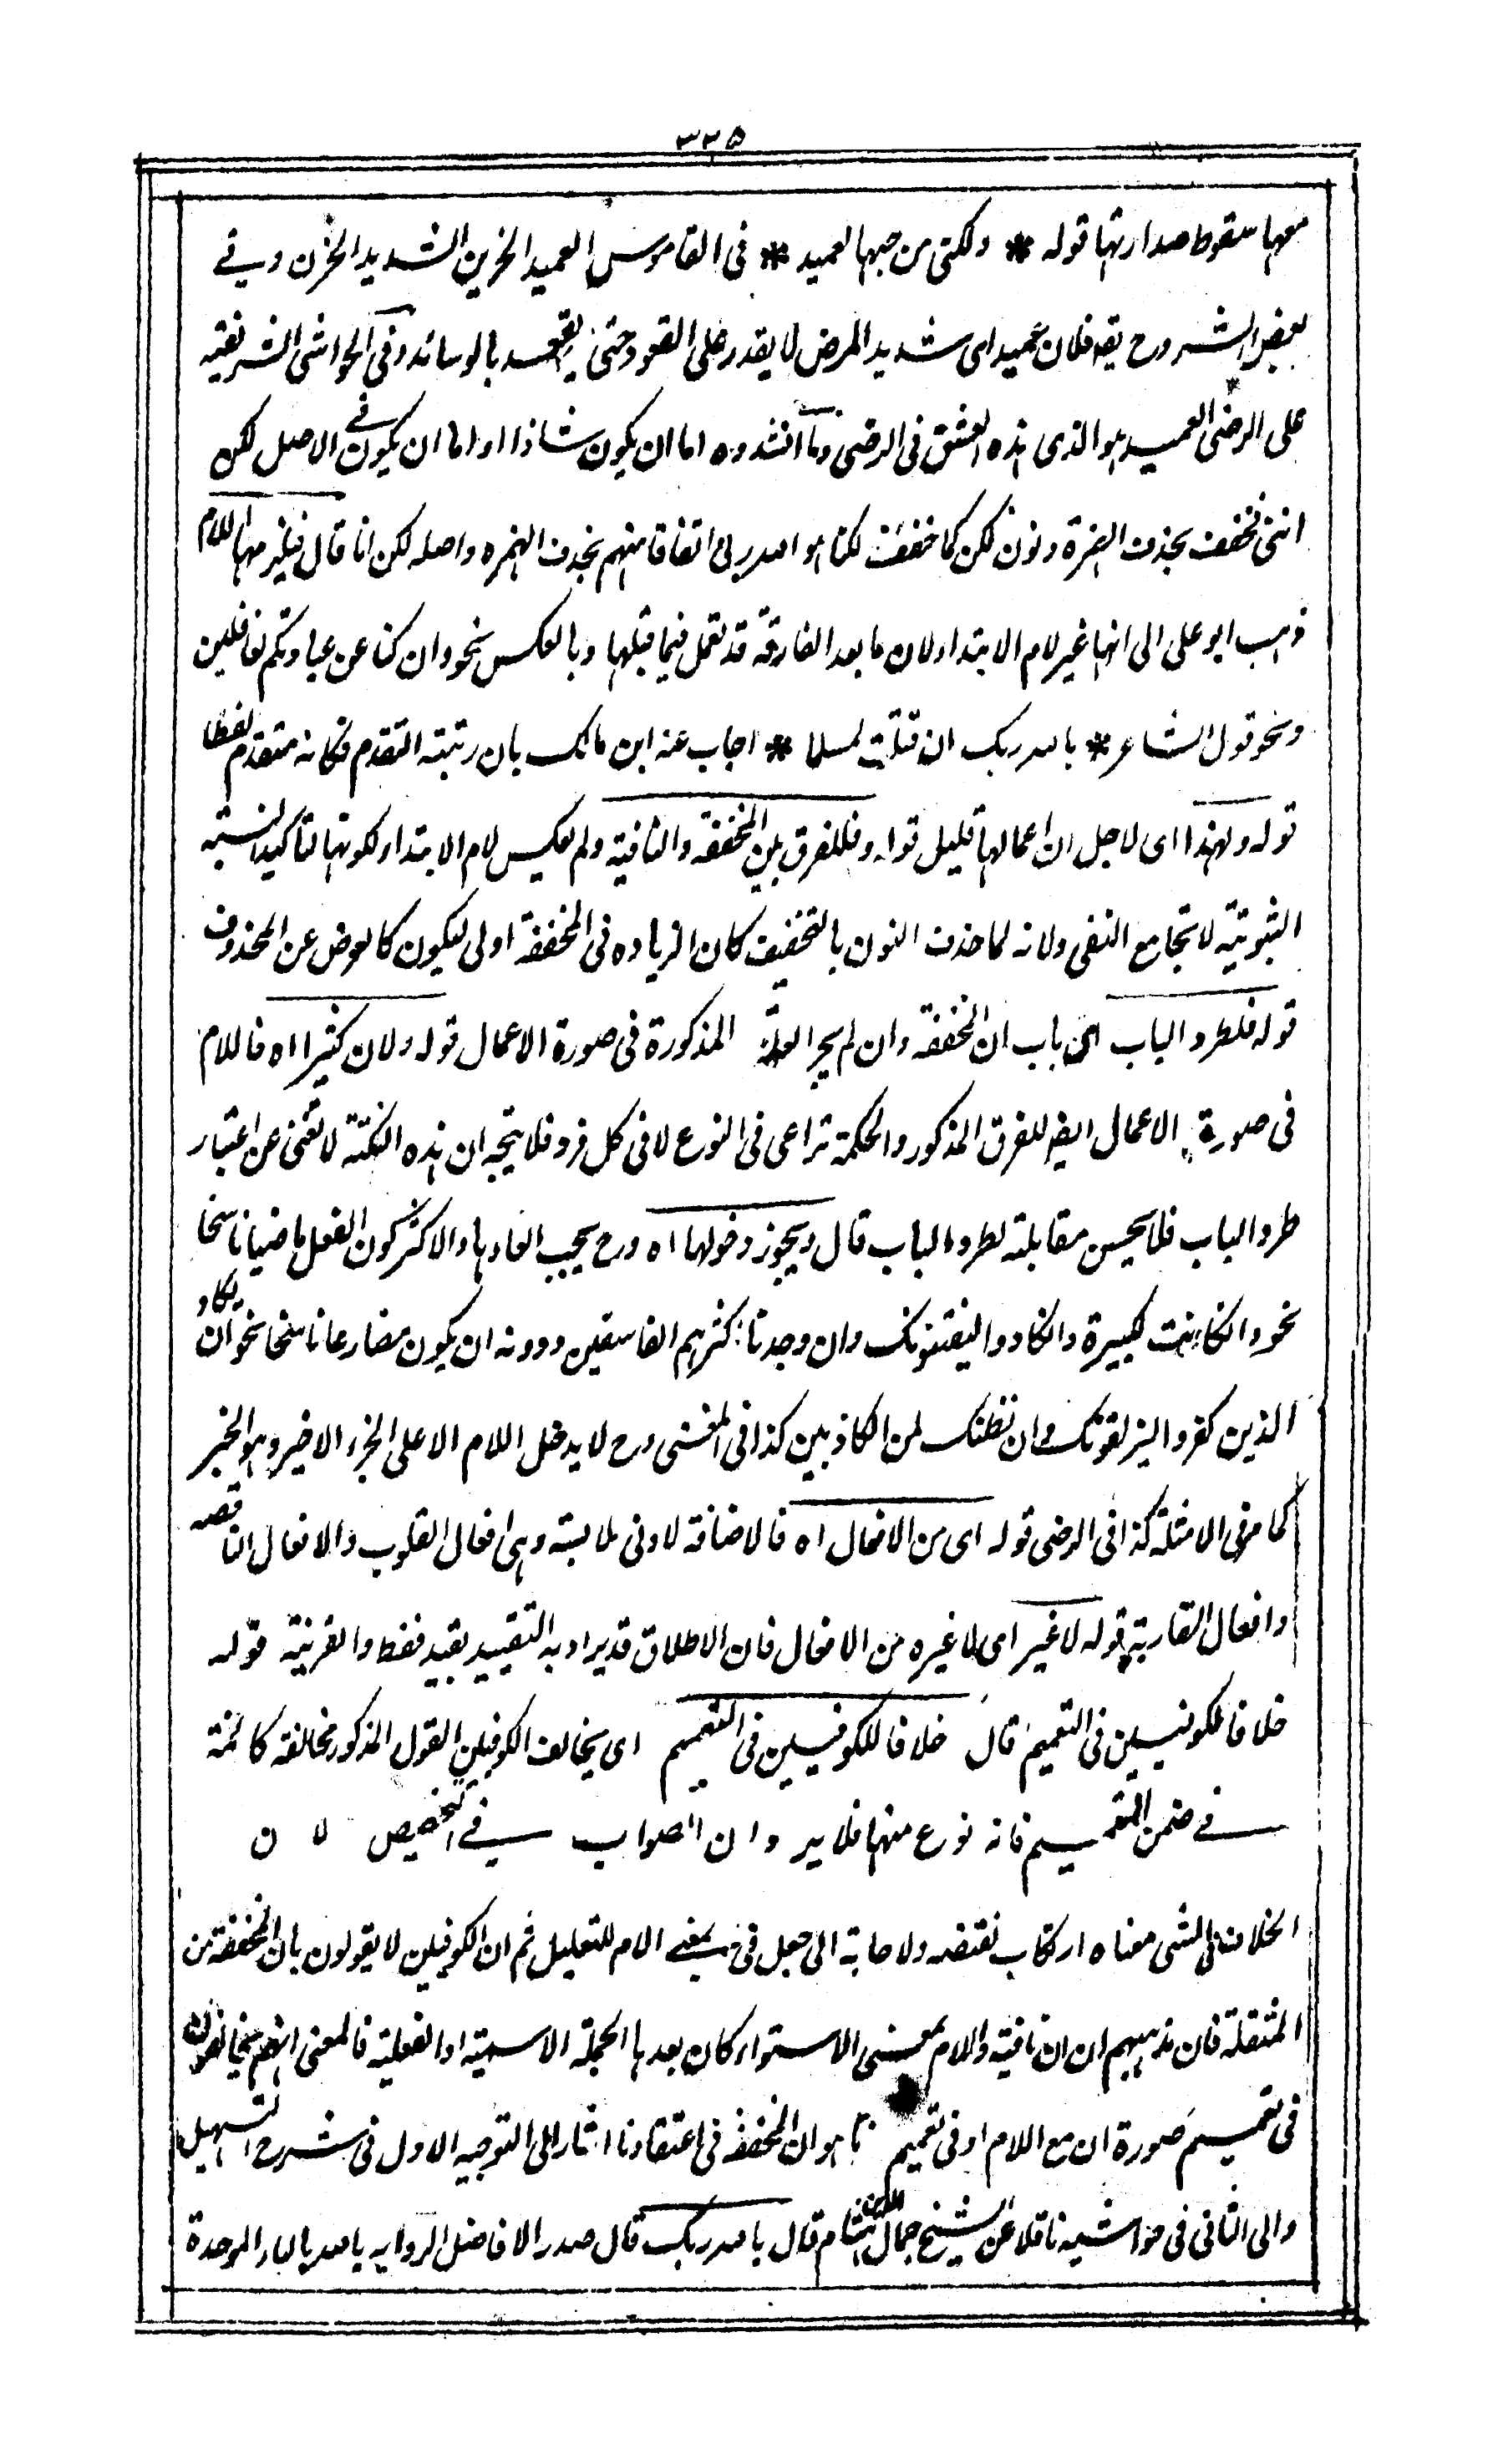 ٣٢٥
معها سقوط صدارتها قوله * ولكنى من حبها لعميد * فى القاموس العميد الحزين الشديد الحزن وفى
بعض الشروح يقه فلان عميد اى شديد المرض لا يقدر على القعود حتى يقعد بالوسائد وفى الحواشى الشريفية
على الرضى العميد هو الذى هده العشق فى الرضى وما انشدوه اما ان يكون شاذا او اما ان يكون فى الاصل لكن
اننى فخفف بحذف الهمزة ونون لكن كما خففت لكنا هو الله ربى اتفاقا منهم بحذف الهمزه واصله لكن انا قال فيلزمها اللام
ذهب ابو على الى انها غير لام الابتداء لان ما بعد الفارقة قد تعمل فيما قبلها وبالعكس نحو وان كنا عن عبادتكم لغافلين
ونحو قول الشاعر * بالله ربك ان قتلت لمسلما * اجاب عنه ابن مالك بان رتبته التقدم فكانه متقدم لفظا
قوله ولهذا اى لاجل ان اعمالها قليل قوله وفللفرق بين المخففة والنافية ولم يعكس لام الابتداء لكونها لتأكيد النسبة
الثبوتية لا تجامع النفى ولانه لما حذف النون بالتخفيف كان الزياده فى المخففة اولى ليكون كالعوض عن المحذوف
قوله فلطرد الباب اى باب ان المخففة وان لم يجر العلة المذكورة فى صورة الاعمال قوله ولان كثيرا اه فاللام
فى صورة الاعمال ايضا للفرق المذكور والحكمة تراعى فى النوع لا فى كل فرد فلا يتجه ان هذه النكتة لا تغنى عن اعتبار
طرد الباب فلا يحسن مقابلته لطرد الباب قال ويجوز دخولها اه وح يجب الغاءها والاكثر كون الفعل ماضيا ناسخا
نحو وان كانت لكبيرة وان كادوا ليفتنونك وان وجدنا اكثرهم لفاسقين ودونه ان يكون مضارعا ناسخا نحو ان يكاد
الذين كفروا ليزلقونك وان نظنك لمن الكاذبين كذا فى المغنى وح لا يدخل اللام الا على الجزء الاخير وهو الخبر
كما مر فى الامثلة كذا فى الرضى قوله اى من الافعال اه فالاضافة لادنى ملابسة وهى افعال القلوب والافعال الناقصة
وافعال المقاربة قوله لا غير اى لا غيره من الافعال فان الاطلاق قد يراد به التقييد بقيد فقط والقرينة قوله
خلافا للكوفيين فى التعميم قال خلافا للكوفيين فى التعميم اى يخالف الكوفيين القول المذكور مخالفة كائنة
فى ضمن التعميم فانه نوع منها فلا يرد ان الصواب فى التخصيص لان
الخلاف فى الشئ معناه ارتكاب نقيضه ولا حاجة الى جعل فى بمعنى اللام للتعليل ثم ان الكوفيين لا يقولون بان المخففة من
المثقلة فان مذهبهم ان ان نافية واللام بمعنى الا سواء كان بعدها الجملة الاسمية او الفعلية فالمعنى انهم يخالفون
فى تعميم صورة ان مع اللام او فى تعميم ما هو ان المخففة فى اعتقادنا اشار الى التوجيه الاول فى شرح التسهيل
والى الثانى فى حواشيه ناقلا عن الشيخ جمال الدين ابن هشام قال بالله ربك قال صدر الافاضل الروايه بالله بالباء الموحدة